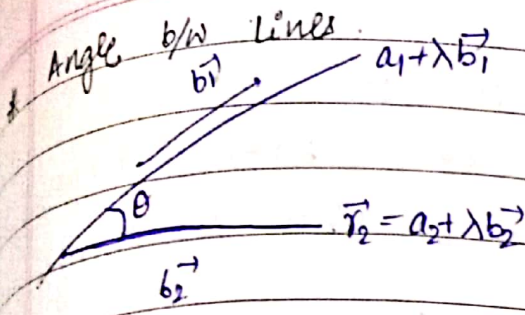 Angle b/w Lines
b₁→ a₁+λb₁→
θ
r₂→ = a₂+λb₂→
b₂→